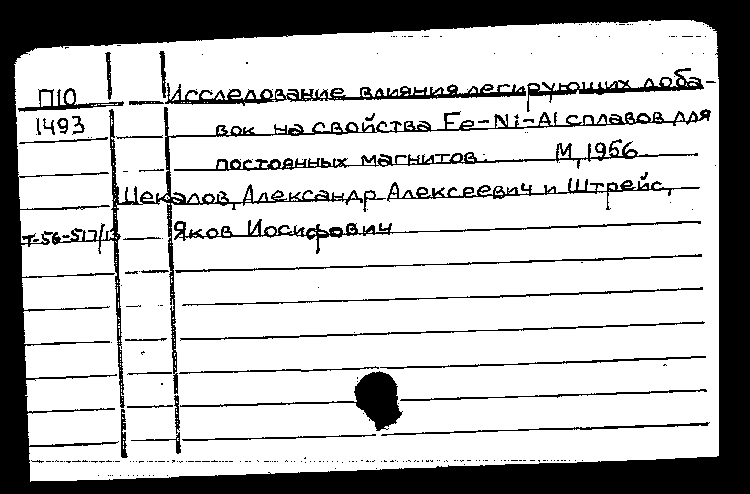 П10 Исследование влияния легирующих доба-
1493 вок на свойства Fe-Ni-Al сплавов для
постоянных магнитов. М, 1956
Шекалов, Александр Алексеевич и Штрейс,
Т-56-517/13 Яков Иосифович